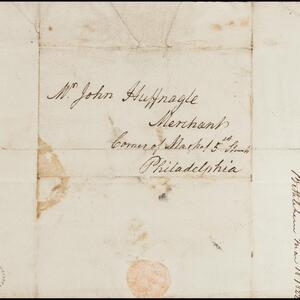 Mr John Huffnagle
Merchant
Corner of Market & 5th Streets
Philadelphia